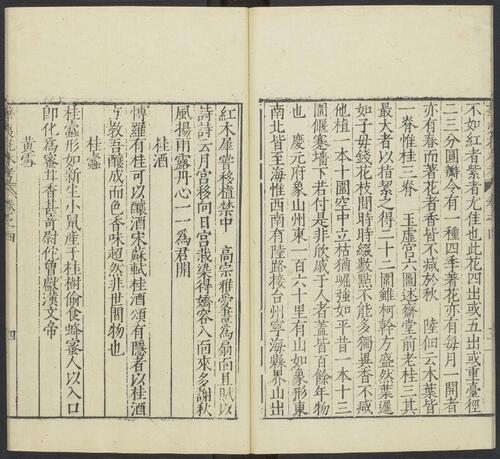 不如紅者紫者尤佳也此花四出或五出或重臺徑
二三分圓瓣今有一種四季著花亦有每月一開者
亦有春而著花者香皆不減於秋　陸佃云木葉皆
一脊惟桂三脊　玉虛宮六圍迷齋堂前老桂三其
最大者以指絜之得二十二圍雖柯幹方盛然葉遲
如子母錢花枝間時時綴數點不能多獨異香不減
他植一本十圍空中立枯猶崛強如平昔一本十三
圍偃蹇墻下若付是非欣戚于人者蓋皆百餘年物
也　慶元府象山州東一百六十里有山如象形東
南北皆至海惟西南有陸路接台州寧海縣界山出
紅木犀嘗移植禁中　高宗雅愛畫爲扇面且賦以
詩詩云月宮移向日宮栽染得嬌容入面來多謝秋
風揚雨露丹心一一爲君開
桂酒
博羅有桂可以釀酒宋蘇軾桂酒頌有隱者以桂酒
方教吾釀成而色香味超然非世間物也
桂蠹
桂蠹形如新生小鼠產于桂樹偷食蜂蜜人以入口
卽化爲蜜其香甚奇尉佗曾獻漢文帝
黃雪
卷之四
四